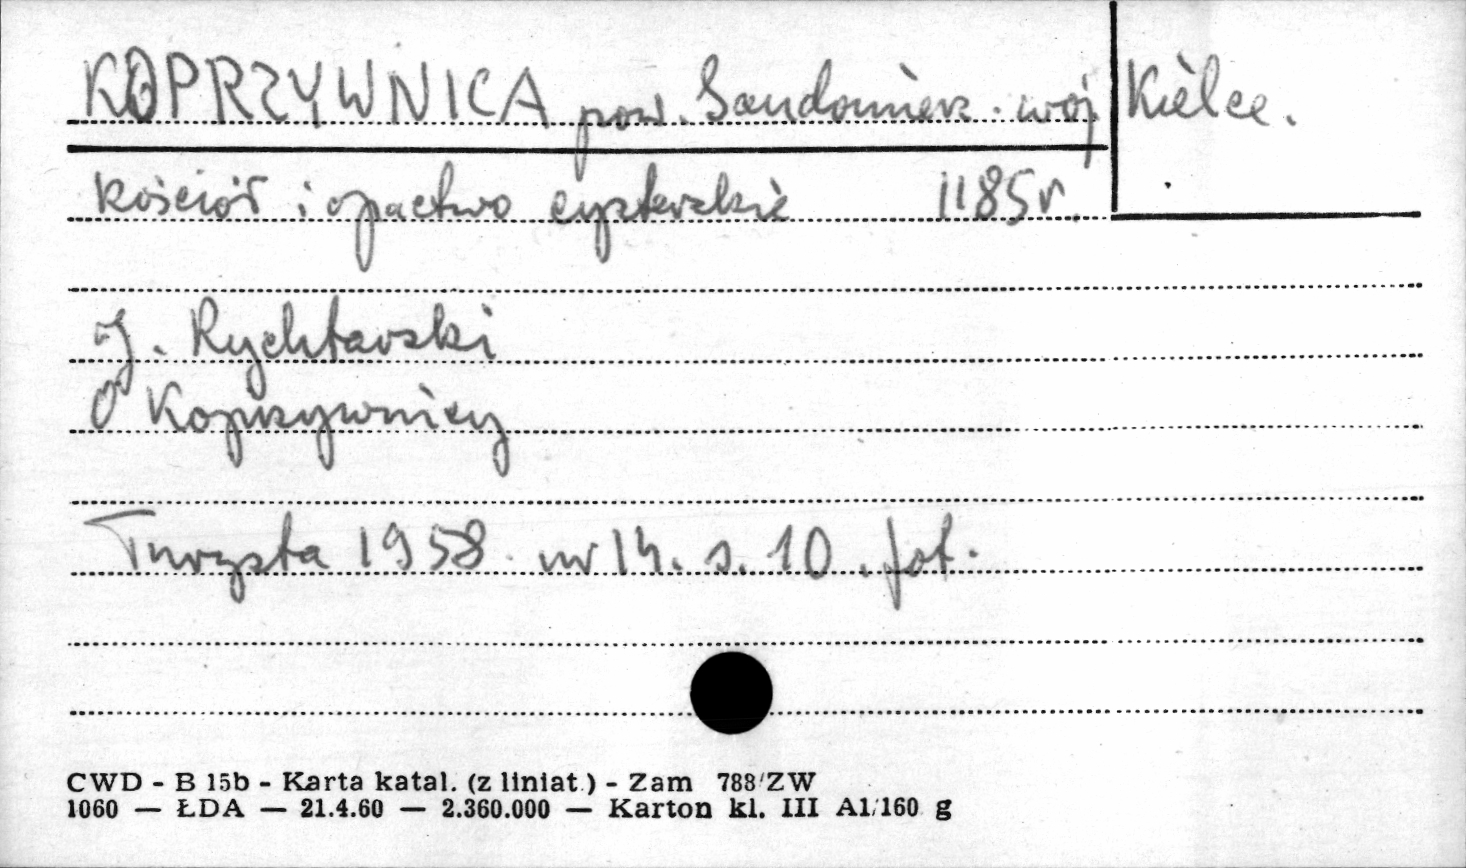 KOPRZYWNICA pow. Sandomierz. woj. Kielce.
Kościół i opactwo cysterskie 1185 r.
J. Rychtarski
O Koprzywnicy
Turysta 1958. nr 14. s. 10. fot.
CWD - B 15b - Karta katal. (z liniat.) - Zam 788/ZW
1060 — ŁDA — 21.4.60 — 2.360.000 — Karton kl. III A1/160 g